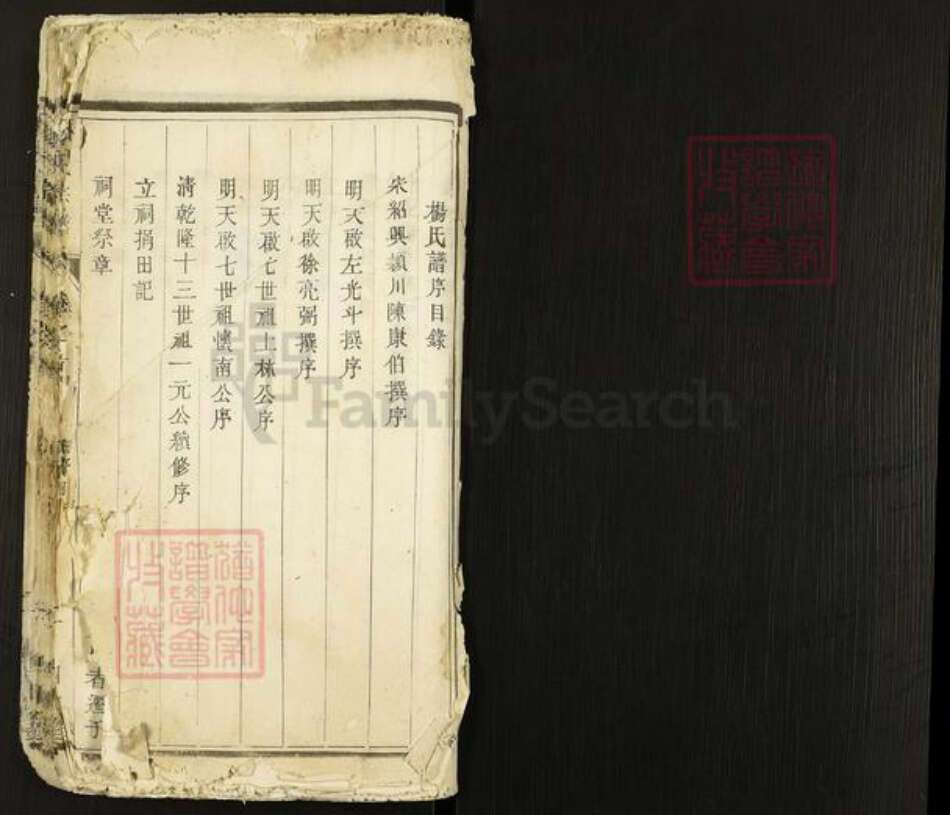 楊氏譜序目錄
宋紹興潁川陳康伯撰序
明天啟左光斗撰序
明天啟徐亮弼撰序
明天啟七世祖上林公序
明天啟七世祖懷南公序
清乾隆十三世祖一元公續修序
立祠捐田記
祠堂祭章
譜學會
收藏
FamilySearch